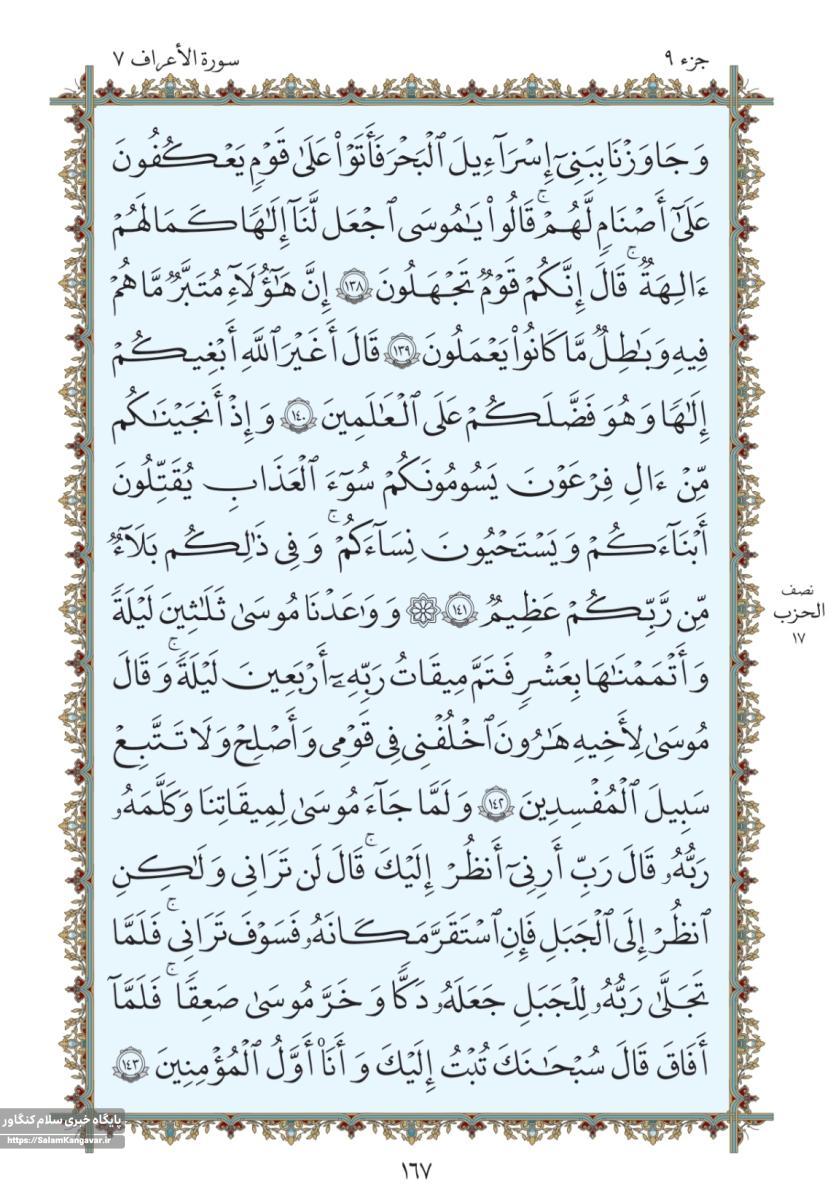 جزء ۹
سورة الأعراف ۷
وَجَاوَزْنَا بِبَنِيٓ إِسْرَآءِيلَ ٱلْبَحْرَ فَأَتَوْاْ عَلَىٰ قَوْمٍ يَعْكُفُونَ
عَلَىٰٓ أَصْنَامٍ لَّهُمْۚ قَالُواْ يَٰمُوسَى ٱجْعَل لَّنَآ إِلَٰهًا كَمَا لَهُمْ
ءَالِهَةٌۚ قَالَ إِنَّكُمْ قَوْمٌ تَجْهَلُونَ ۱۳۸ إِنَّ هَٰٓؤُلَآءِ مُتَبَّرٌ مَّا هُمْ
فِيهِ وَبَٰطِلٌ مَّا كَانُواْ يَعْمَلُونَ ۱۳۹ قَالَ أَغَيْرَ ٱللَّهِ أَبْغِيكُمْ
إِلَٰهًا وَهُوَ فَضَّلَكُمْ عَلَى ٱلْعَٰلَمِينَ ۱۴۰ وَإِذْ أَنجَيْنَٰكُم
مِّنْ ءَالِ فِرْعَوْنَ يَسُومُونَكُمْ سُوٓءَ ٱلْعَذَابِ يُقَتِّلُونَ
أَبْنَآءَكُمْ وَيَسْتَحْيُونَ نِسَآءَكُمْۚ وَفِي ذَٰلِكُم بَلَآءٌ
مِّن رَّبِّكُمْ عَظِيمٌ ۱۴۱ ۞ وَوَٰعَدْنَا مُوسَىٰ ثَلَٰثِينَ لَيْلَةً
نصف
الحزب
۱۷
وَأَتْمَمْنَٰهَا بِعَشْرٍ فَتَمَّ مِيقَٰتُ رَبِّهِۦٓ أَرْبَعِينَ لَيْلَةًۚ وَقَالَ
مُوسَىٰ لِأَخِيهِ هَٰرُونَ ٱخْلُفْنِي فِي قَوْمِي وَأَصْلِحْ وَلَا تَتَّبِعْ
سَبِيلَ ٱلْمُفْسِدِينَ ۱۴۲ وَلَمَّا جَآءَ مُوسَىٰ لِمِيقَٰتِنَا وَكَلَّمَهُۥ
رَبُّهُۥ قَالَ رَبِّ أَرِنِيٓ أَنظُرْ إِلَيْكَۚ قَالَ لَن تَرَىٰنِي وَلَٰكِنِ
ٱنظُرْ إِلَى ٱلْجَبَلِ فَإِنِ ٱسْتَقَرَّ مَكَانَهُۥ فَسَوْفَ تَرَىٰنِيۚ فَلَمَّا
تَجَلَّىٰ رَبُّهُۥ لِلْجَبَلِ جَعَلَهُۥ دَكًّا وَخَرَّ مُوسَىٰ صَعِقًاۚ فَلَمَّآ
أَفَاقَ قَالَ سُبْحَٰنَكَ تُبْتُ إِلَيْكَ وَأَنَا۠ أَوَّلُ ٱلْمُؤْمِنِينَ ۱۴۳
پایگاه خبری سلام کنگاور
https://SalamKangavar.ir
۱۶۷